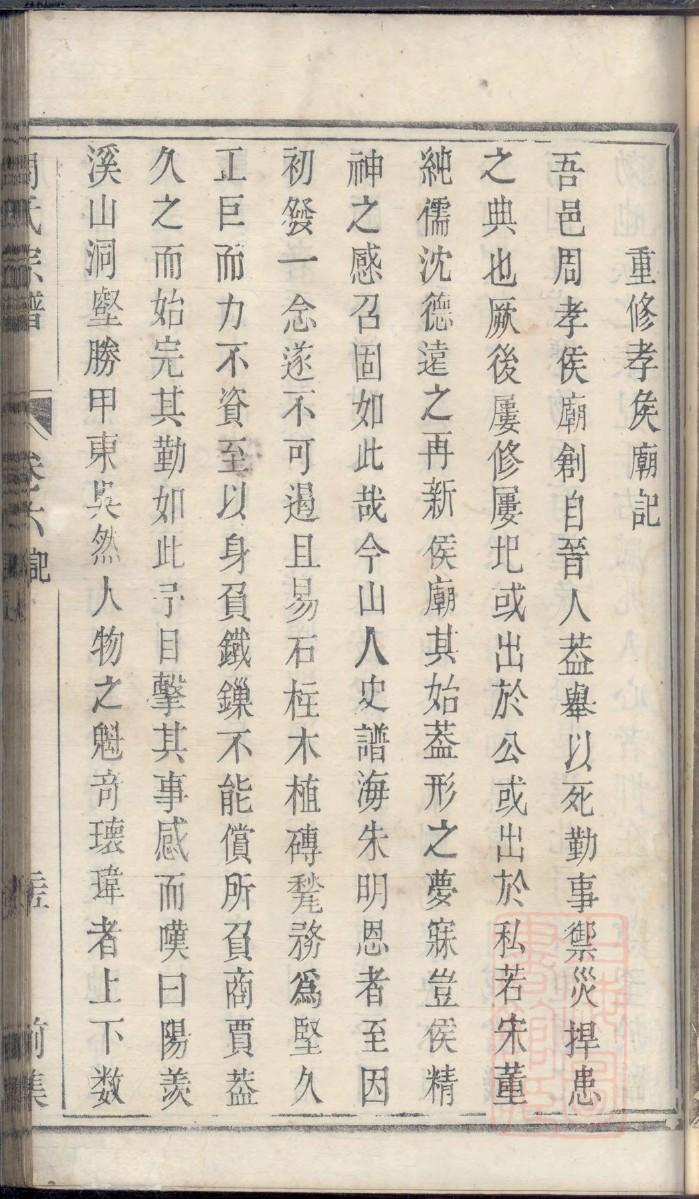 重修孝侯廟記
吾邑周孝侯廟創自晉人葢舉以死勤事禦災捍患
之典也厥後屢修屢圮或出於公或出於私若宋董
純儒沈德遠之再新侯廟其始葢形之夢寐豈侯精
神之感召固如此哉今山人史譜海朱明恩者至因
初發一念遂不可遏且易石柱木植磚甃務爲堅久
工巨而力不資至以身負鐵鏁不能償所負商賈葢
久之而始完其勤如此予目擊其事感而嘆曰陽羨
溪山洞壑勝甲東吳然人物之魁奇瓌瑋者上下数
周氏宗譜
卷六 記